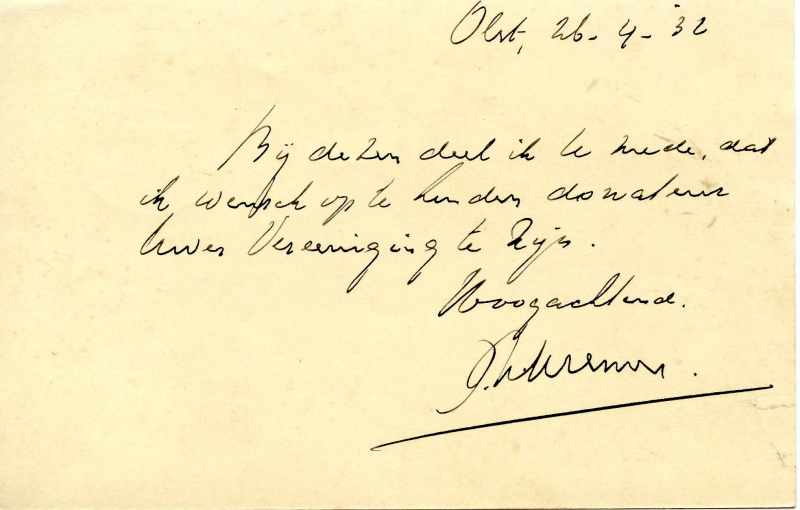 Olst, 26-4-'32
Bij dezen deel ik U mede, dat
ik wensch op te houden donateur
Uwer Vereeniging te zijn.
Hoogachtend.